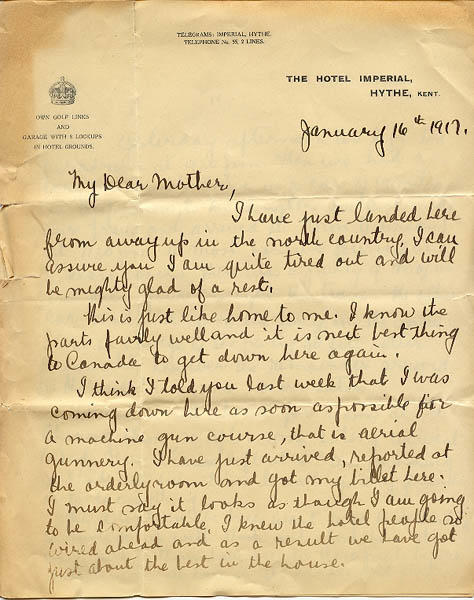 TELEGRAMS: IMPERIAL, HYTHE.
TELEPHONE No. 55, 2 LINES.
THE HOTEL IMPERIAL,
HYTHE, KENT.
OWN GOLF LINKS
AND
GARAGE WITH 8 LOCKUPS
IN HOTEL GROUNDS.
January 16th 1917.
My Dear Mother,
I have just landed here
from away up in the north country, I can
assure you I am quite tired out and will
be mighty glad of a rest.
This is just like home to me. I know the
parts fairly well and it is next best thing
to Canada to get down here again.
I think I told you last week that I was
coming down here as soon as possible for
a machine gun course, that is aerial
gunnery. I have just arrived, reported at
the orderly room and got my billet here.
I must say it looks as though I am going
to be comfortable, I knew the hotel people so
wired ahead and as a result we have got
just about the best in the house.